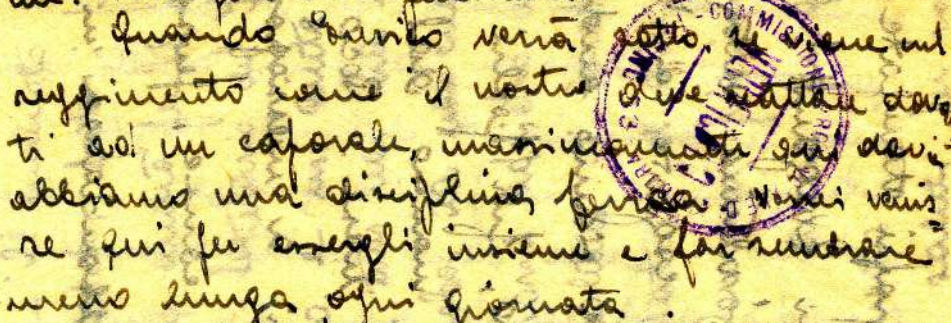 Quando Enrico verrà sotto se viene nel
reggimento come il nostro deve scattare davan
ti ad un caporale, massimamente qui dovi
abbiamo una disciplina ferrea. Vorrei venis=
re qui per essergli insieme e far sembrare
meno lunga ogni giornata.
COMMISSIONE
VERIFICATO